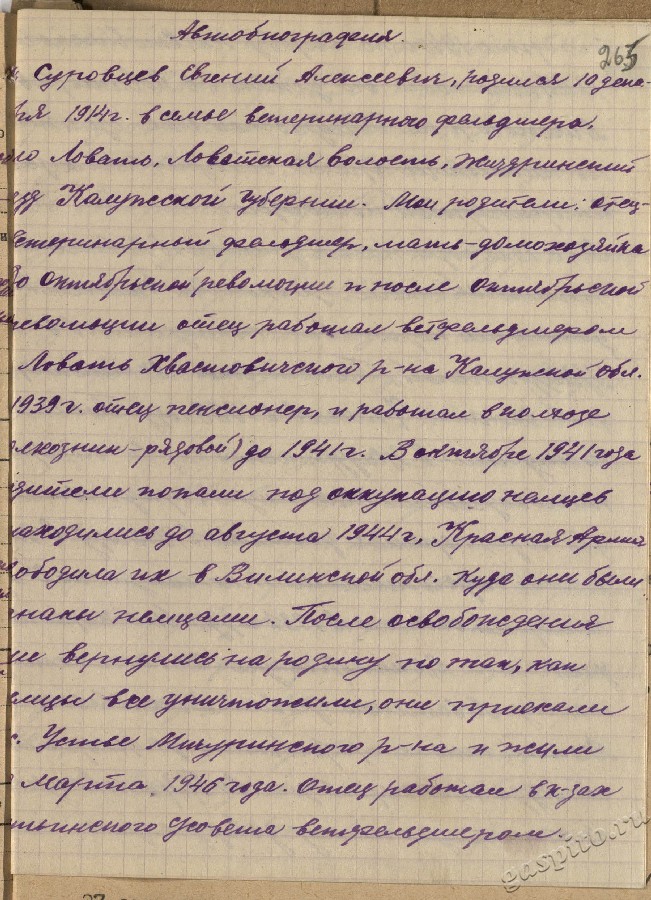 Автобиография.
265
Я, Суровцев Евгений Алексеевич, родился 10 дека-
бря 1914 г. в семье ветеринарного фельдшера.
ело Ловать, Ловатская волость, Жиздринский
езд Калужской губернии. Мои родители: отец-
ветеринарный фельдшер, мать-домохозяйка
до октябрьской революции и после октябрьской
революции отец работал ветфельдшером
Ловать Хвастовичского р-на Калужской обл.
1939 г. отец пенсионер, и работал в колхозе
олхозник-рядовой) до 1941 г. В октябре 1941 года
одители попали под оккупацию немцев
находились до августа 1944 г, Красная Армия
ободила их в Вилинской обл. куда они были
гнаны немцами. После освобождения
ни вернулись на родину но так, как
емцы все уничтожили, они приехали
с. Устье Мичуринского р-на и жили
Марта 1946 года. Отец работал в к-зах
тьинского с/совета ветфельдшером.
gaspito.ru